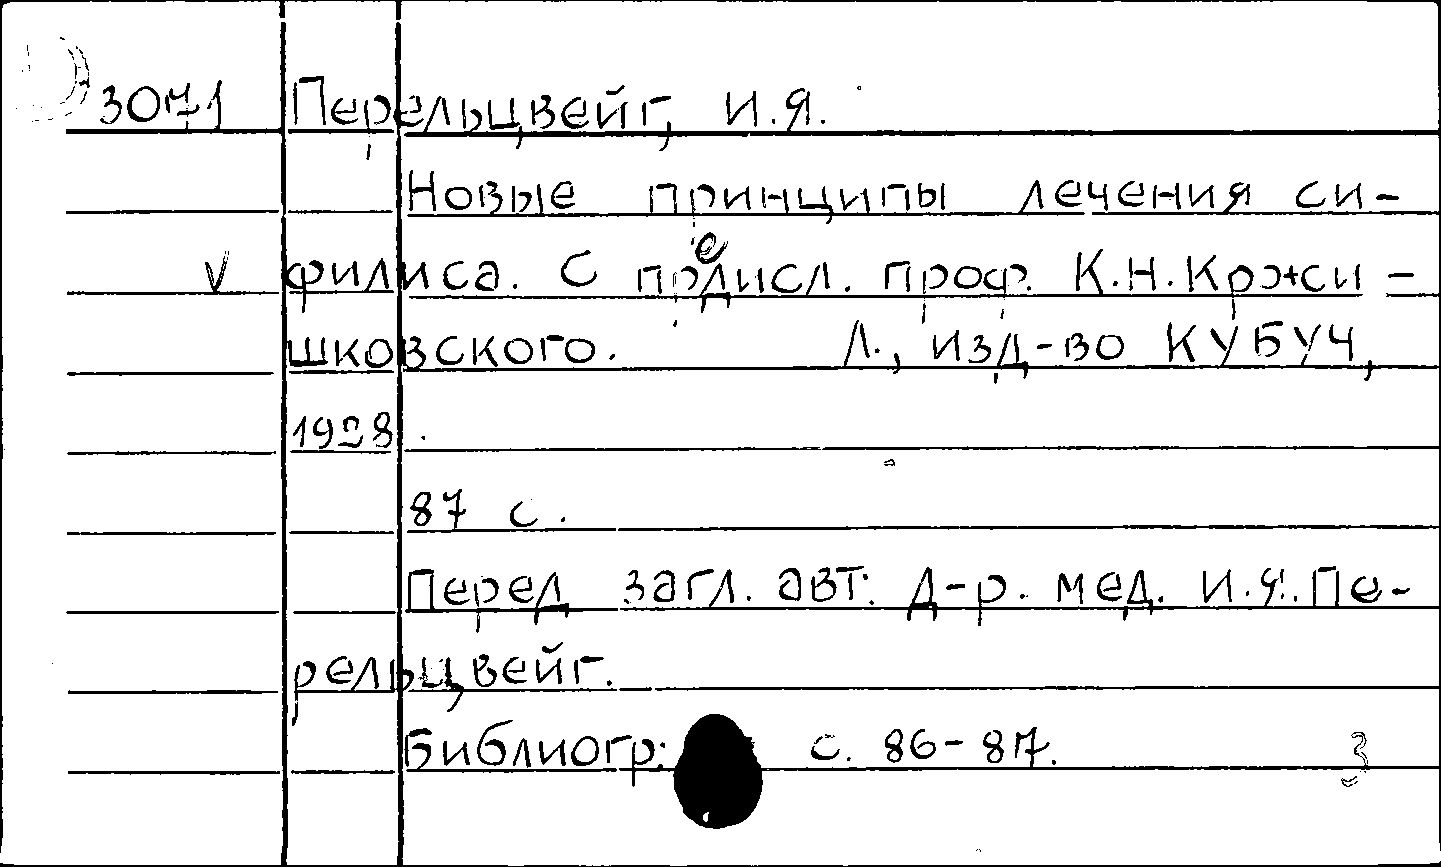 3071 Перельцвейг, И.Я.
Новые принципы лечения си-
V филиса. С предисл. проф. К.Н.Кржи-
шковского. Л., изд-во КУБУЧ,
1928.
87 с.
Перед загл. авт: д-р. мед. И.Я.Пе-
рельцвейг.
Библиогр: с. 86-87. 3